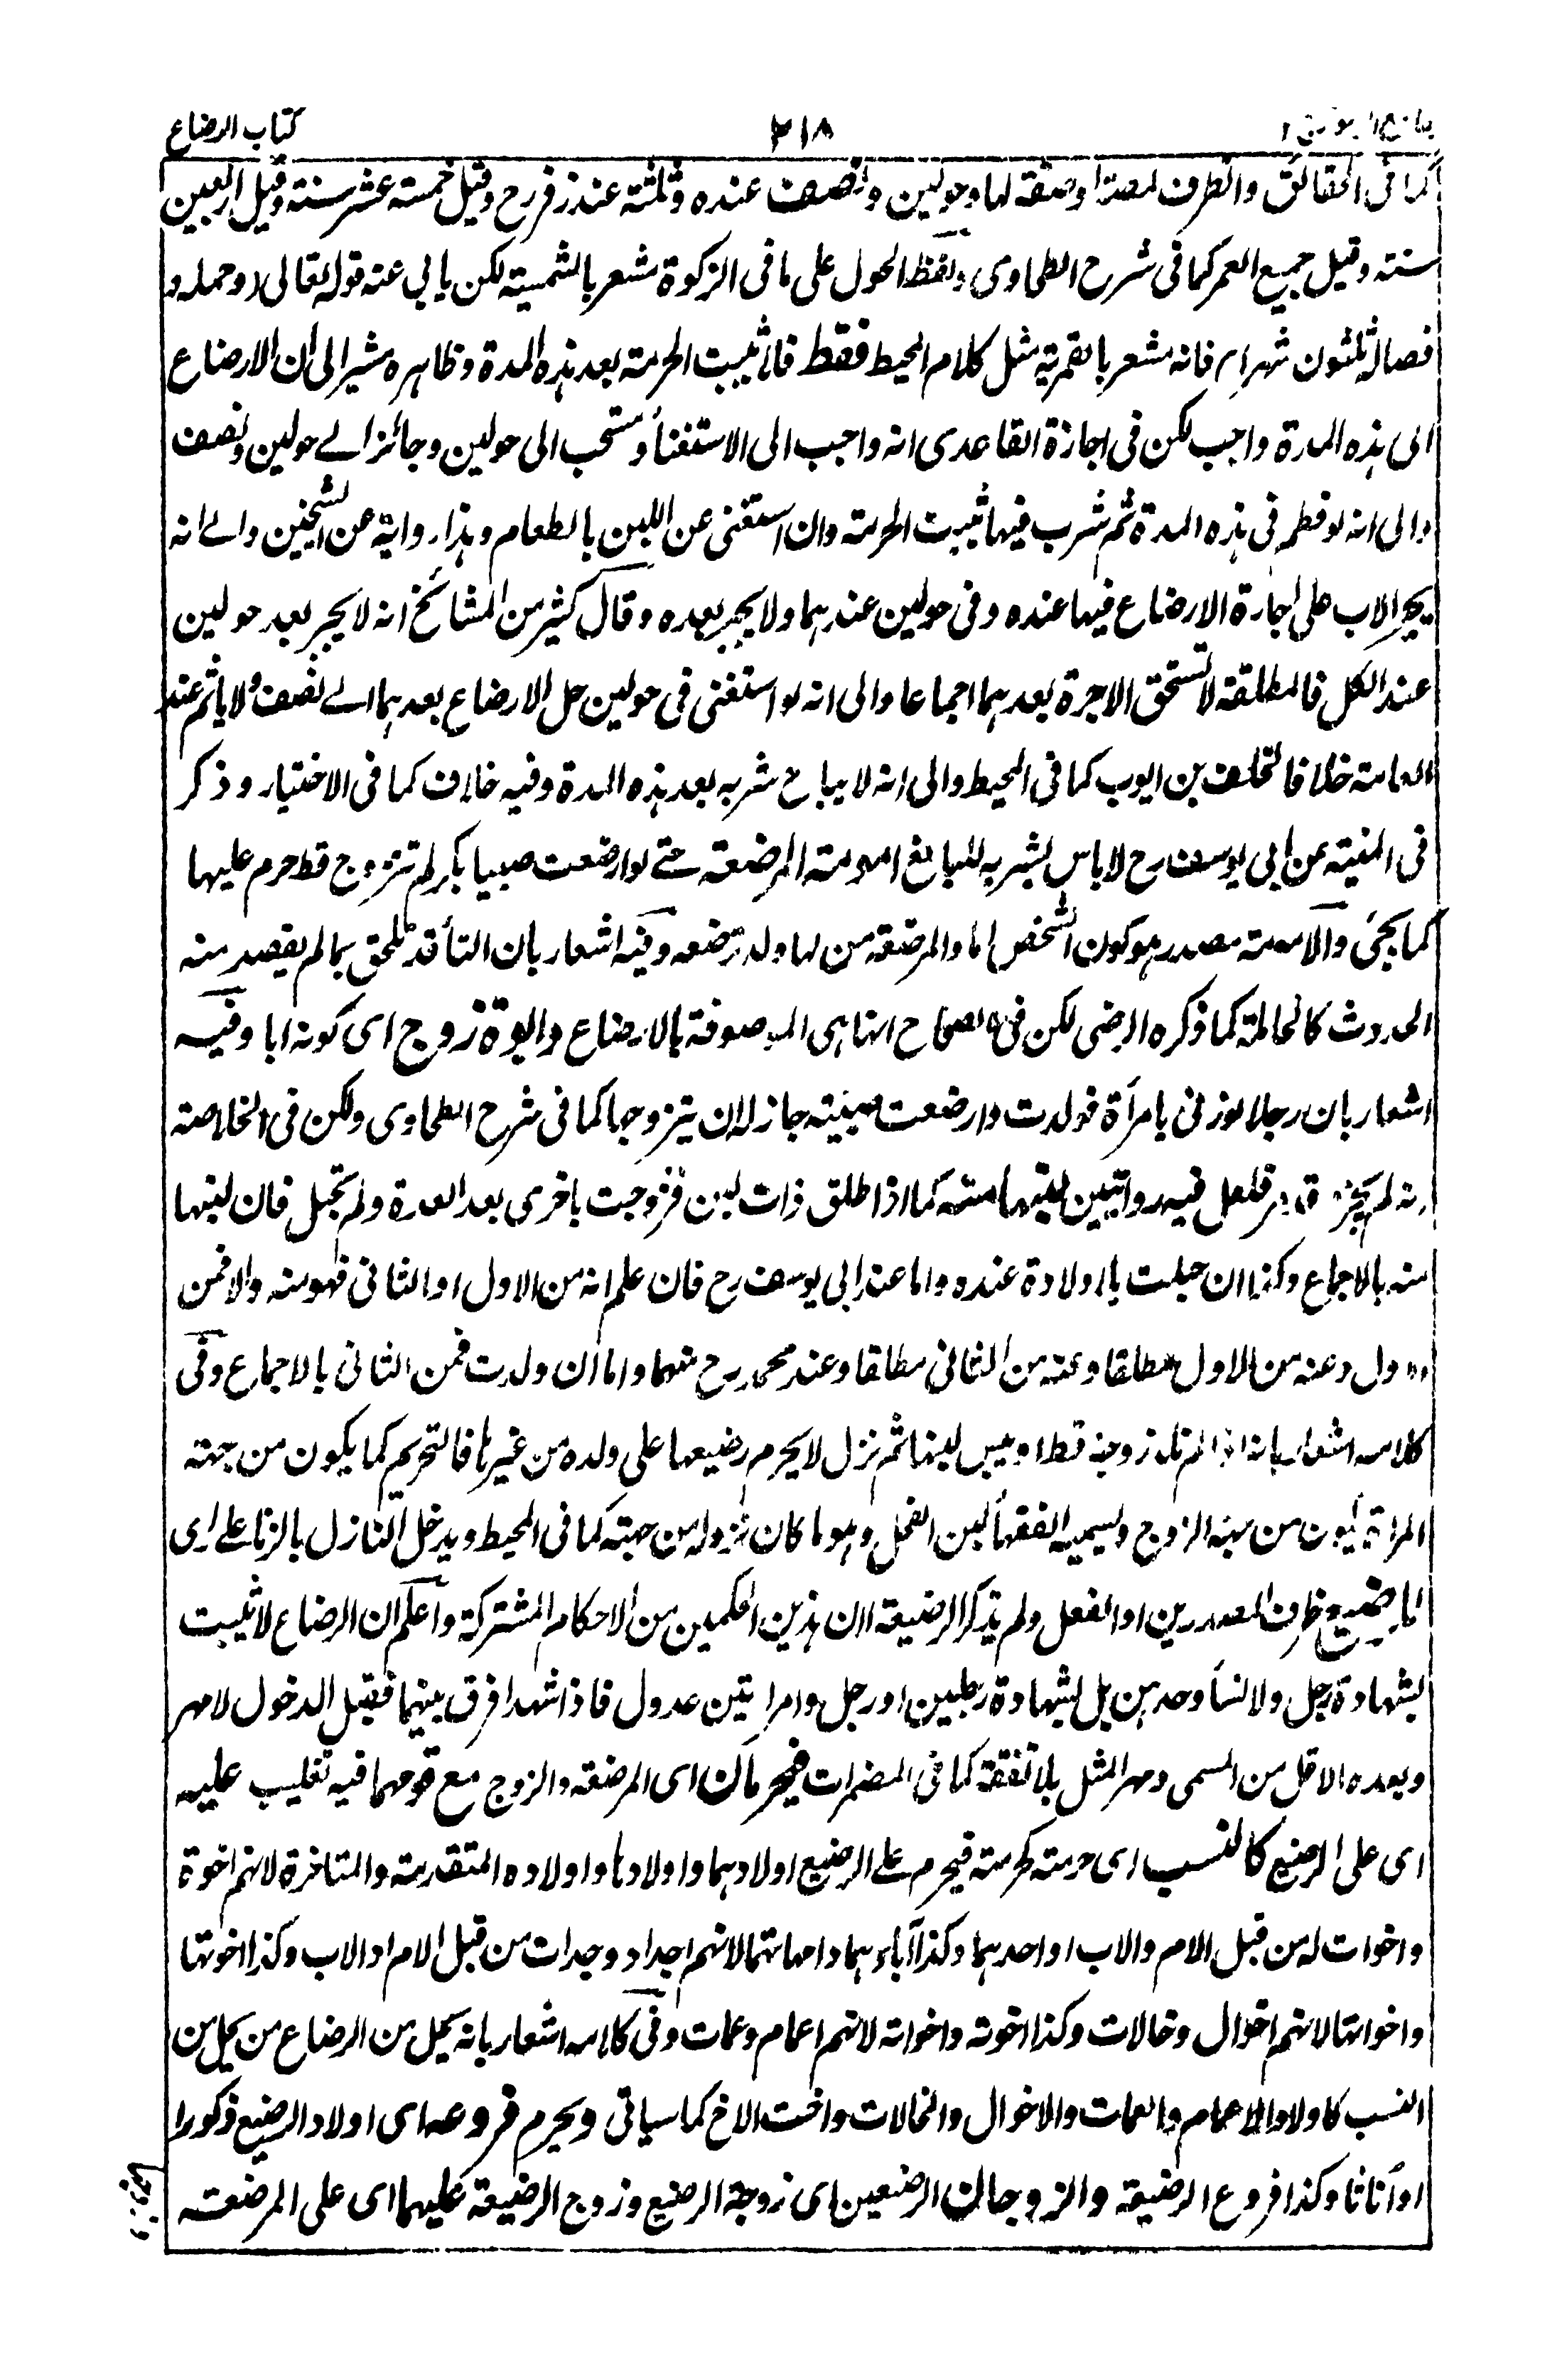 كتاب الرضاع
٢١٨
كما فى الحقائق والظرف لمصة او صفة لها وحولين ونصف عنده وثلثة عند زفر رح وقيل خمسة عشر سنة وقيل اربعين
سنة وقيل جميع العمر كما فى شرح الطحاوى ولفظ الحول على ما فى الزكوة مشعر بالشمسية لكن يابى عنه قوله تعالى (وحمله و
فصاله ثلثون شهرا) فانه مشعر بالقمرية مثل كلام المحيط فقط فلا يثبت الحرمة بعد هذه المدة وظاهره مشير الى ان الارضاع
الى هذه المدة واجب لكن فى اجازة القاعدى انه واجب الى الاستغناء ومستحب الى حولين وجائز الى حولين ونصف
والى انه لو فطم فى هذه المدة ثم شرب فيها يثبت الحرمة وان استغنى عن اللبن بالطعام وهذا رواية عن الشيخين والى انه
يجبر الاب على اجارة الارضاع فيها عنده وفى حولين عندهما ولا يجبر بعده وقال كثير من المشائخ انه لا يجبر بعد حولين
عند الكل فالمطلقة لا تستحق الاجرة بعدهما اجماعا والى انه لو استغنى فى حولين حل الارضاع بعدهما الى نصف ولا ياثم عند
العامة خلافا لخلف بن ايوب كما فى المحيط والى انه لا يباح شربه بعد هذه المدة وفيه خلاف كما فى الاختيار وذكر
فى المنية عن ابى يوسف رح لا باس بشربه للبالغ امومة المرضعة حتى لو ارضعت صبيا بكر لم تتزوج قط حرم عليها
كما يجئ والامومة مصدر هو كون الشخص اما والمرضعة من لها ولد ترضعه وفيه اشعار بان التاء قد تلحق بما لم يقصد منه
الحدوث كالحاملة كما ذكره الرضى لكن فى الصحاح انها هى الموصوفة بالارضاع وابوة زوج اى كونه ابا وفيه
اشعار بان رجلا لو زنى بامرأة فولدت وارضعت صبية جاز له ان يتزوجها كما فى شرح الطحاوى ولكن فى الخلاصة
انه لم يجز فلعل فيه روايتين لبنها منه كما اذا طلق ذات لبن فزوجت باخرى بعد العدة ولم تحبل فان لبنها
منه بالاجماع وكذا ان حبلت بلا ولادة عنده واما عند ابى يوسف رح فان علم انه من الاول او الثانى فهو منه والا فمن
الاول وعنه من الاول مطلقا وعنه من الثانى مطلقا وعند محمد رح منهما واما ان ولدت فمن الثانى بالاجماع وفى
كلامه اشعار بانه اذا لم تلد زوجة قط او يبس لبنها ثم نزل لا يحرم رضيعها على ولده من غيرها فالتحريم كما يكون من جهة
المرأة يكون من جهة الزوج ويسميه الفقهاء لبن الفحل وهو ما كان نزوله من جهته كما فى المحيط ويدخل النازل بالزنا على اى
للرضيع ظرف المصدرين او الفعل ولم يذكر الرضيعة لان هذين الحكمين من الاحكام المشتركة واعلم ان الرضاع لا يثبت
بشهادة رجل ولا نساء وحدهن بل بشهادة رجلين او رجل وامرايتين عدول فاذا شهدا فرق بينهما فقبل الدخول لا مهر
وبعده الاقل من المسمى ومهر المثل بلا نفقة كما فى المضمرات فيحرمان اى المرضعة والزوج مع قومهما فيه تغليب عليه
اى على الرضيع كالنسب اى حرمته كحرمته فيحرم على الرضيع اولادهما واولادها واولاده المتقدمة والمتاخرة لانهم اخوة
واخوات له من قبل الام والاب او احدهما وكذا آباءهما وامهاتهما لانهم اجداد وجدات من قبل الام او الاب وكذا اخوتها
واخواتها لانهم اخوال وخالات وكذا اخوته واخواته لانهم اعمام وعمات وفى كلامه اشعار بانه يحل من الرضاع من يحل من
النسب كاولاد الاعمام والعمات والاخوال والخالات واخت الاخ كما سياتى ويحرم فروعه اى اولاد الرضيع ذكورا
او اناثا وكذا فروع الرضيعة والزوجان الرضيعين اى زوجة الرضيع وزوج الرضيعة عليهما اى على المرضعة